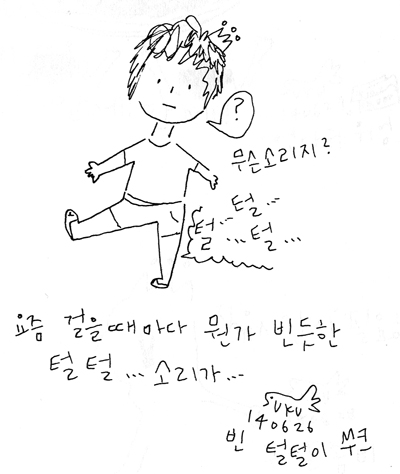 ?
무슨소리지?
털...
털...털...
요즘 걸을때마다 뭔가 빈듯한
털털...소리가...
SUKU
140626
빈 털털이 쑤크